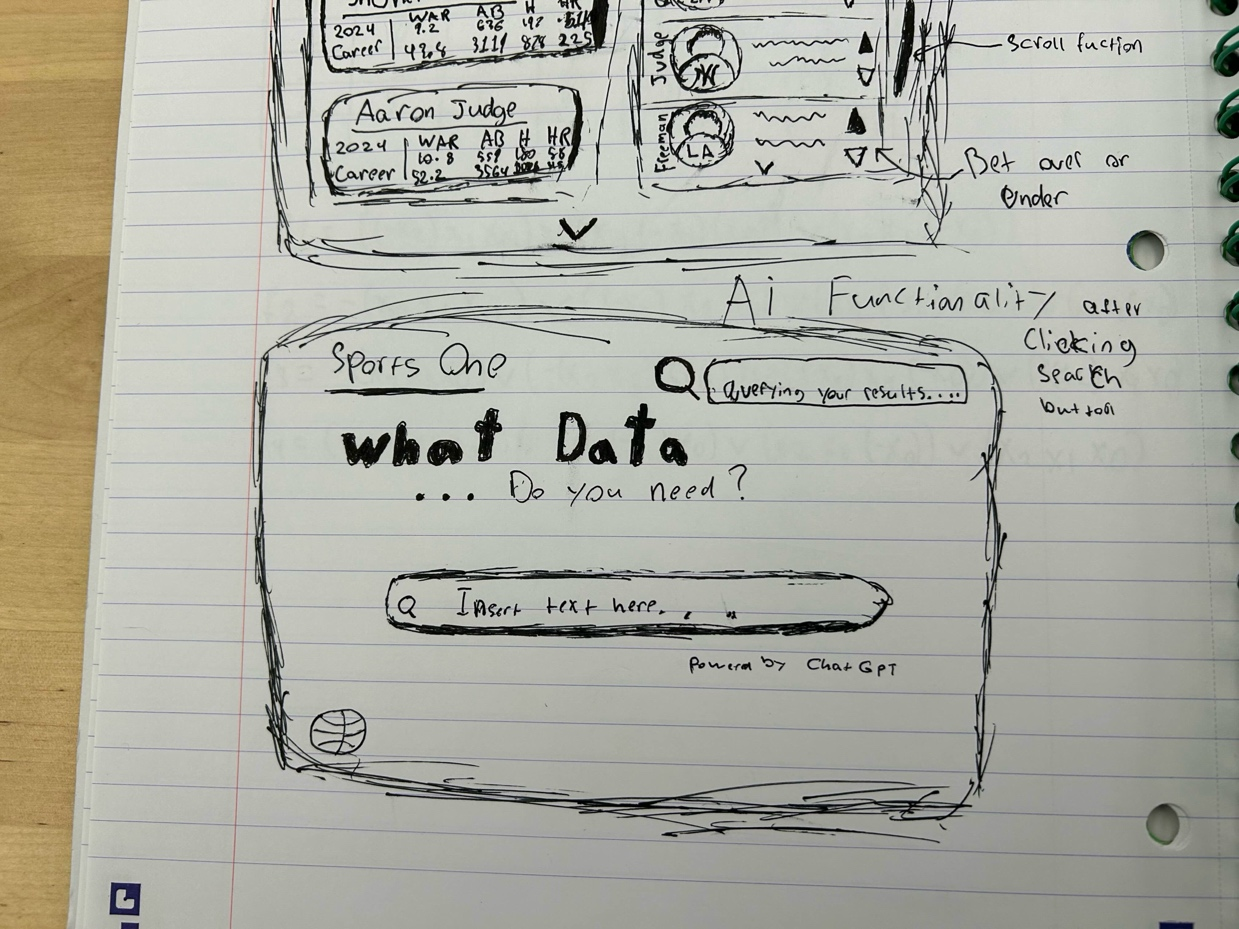 WAR AB H HR
2024 9.2 636 197
Career 43.8 3111 878 225
Aaron Judge
WAR AB H HR
2024 10.8 559 180 58
Career 52.2 3564
Judge
Freeman
LA
Scroll fuction
Bet over or
Under
Ai Functionality after
Clicking
Search
button
Sports One
Querying your results....
what Data
... Do you need?
Insert text here....
Powered by ChatGPT